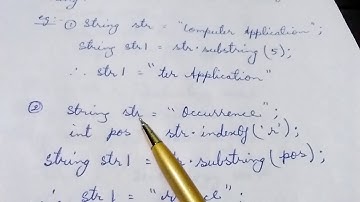 eg:- ① String str = "Computer Application";
String str1 = str.substring(5);
∴ str1 = "ter Application"
② String str = "Occurrence";
int pos = str.indexOf('r');
String str1 = str.substring(pos);
∴ str1 =